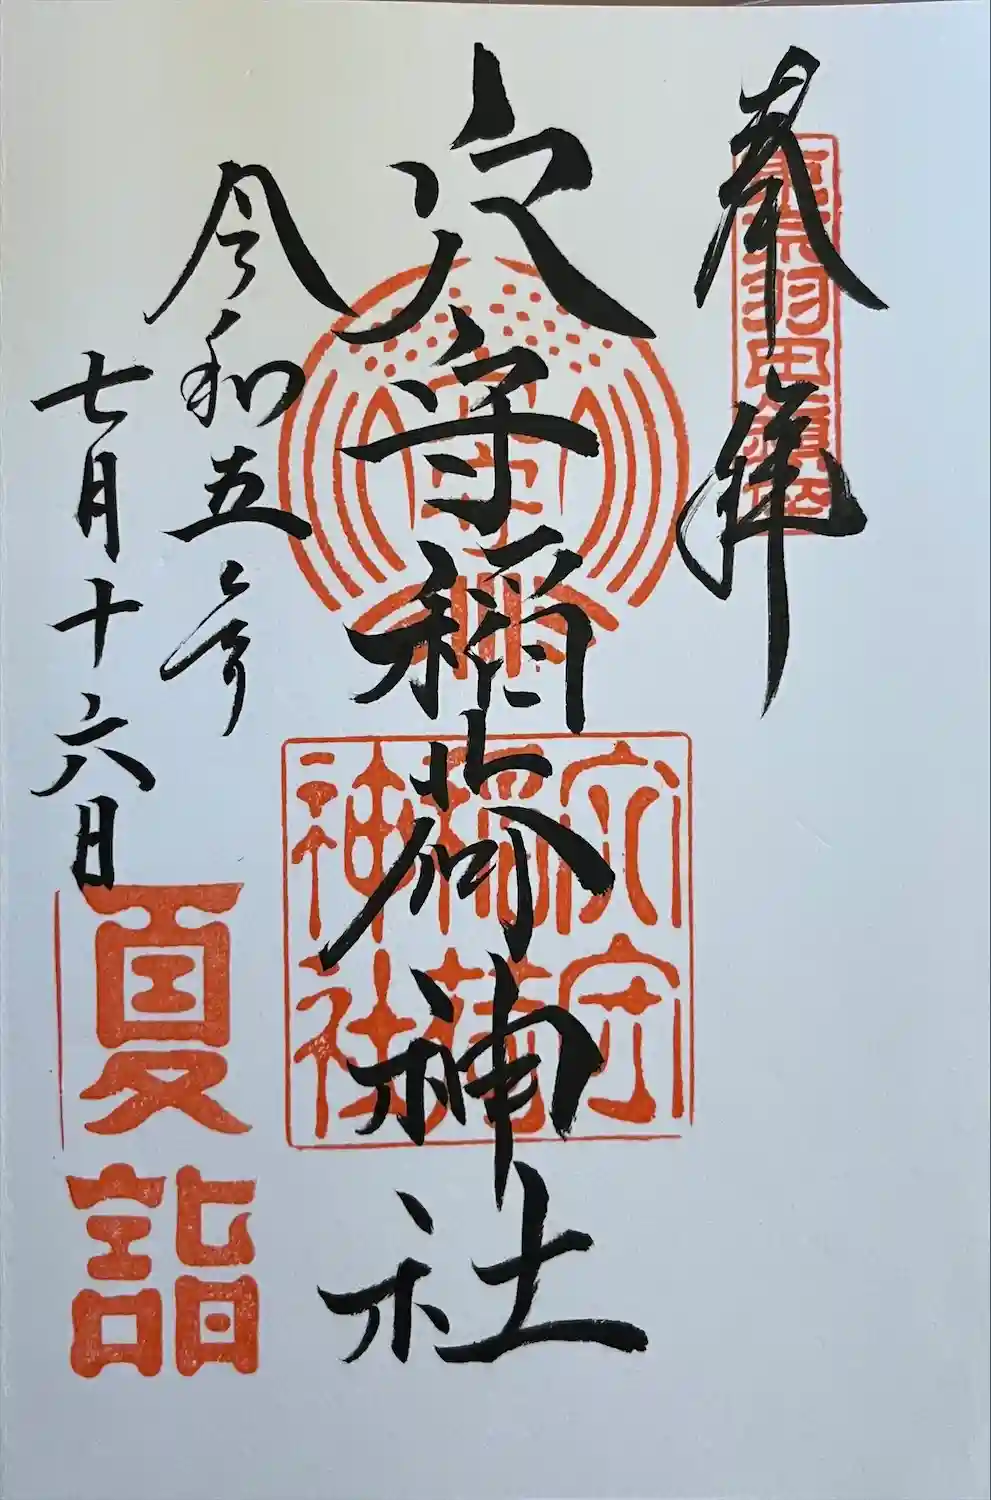 奉拝
東京羽田鎮座
穴守稲荷神社
穴守
稲荷
神社
令和五年
七月十六日
夏詣